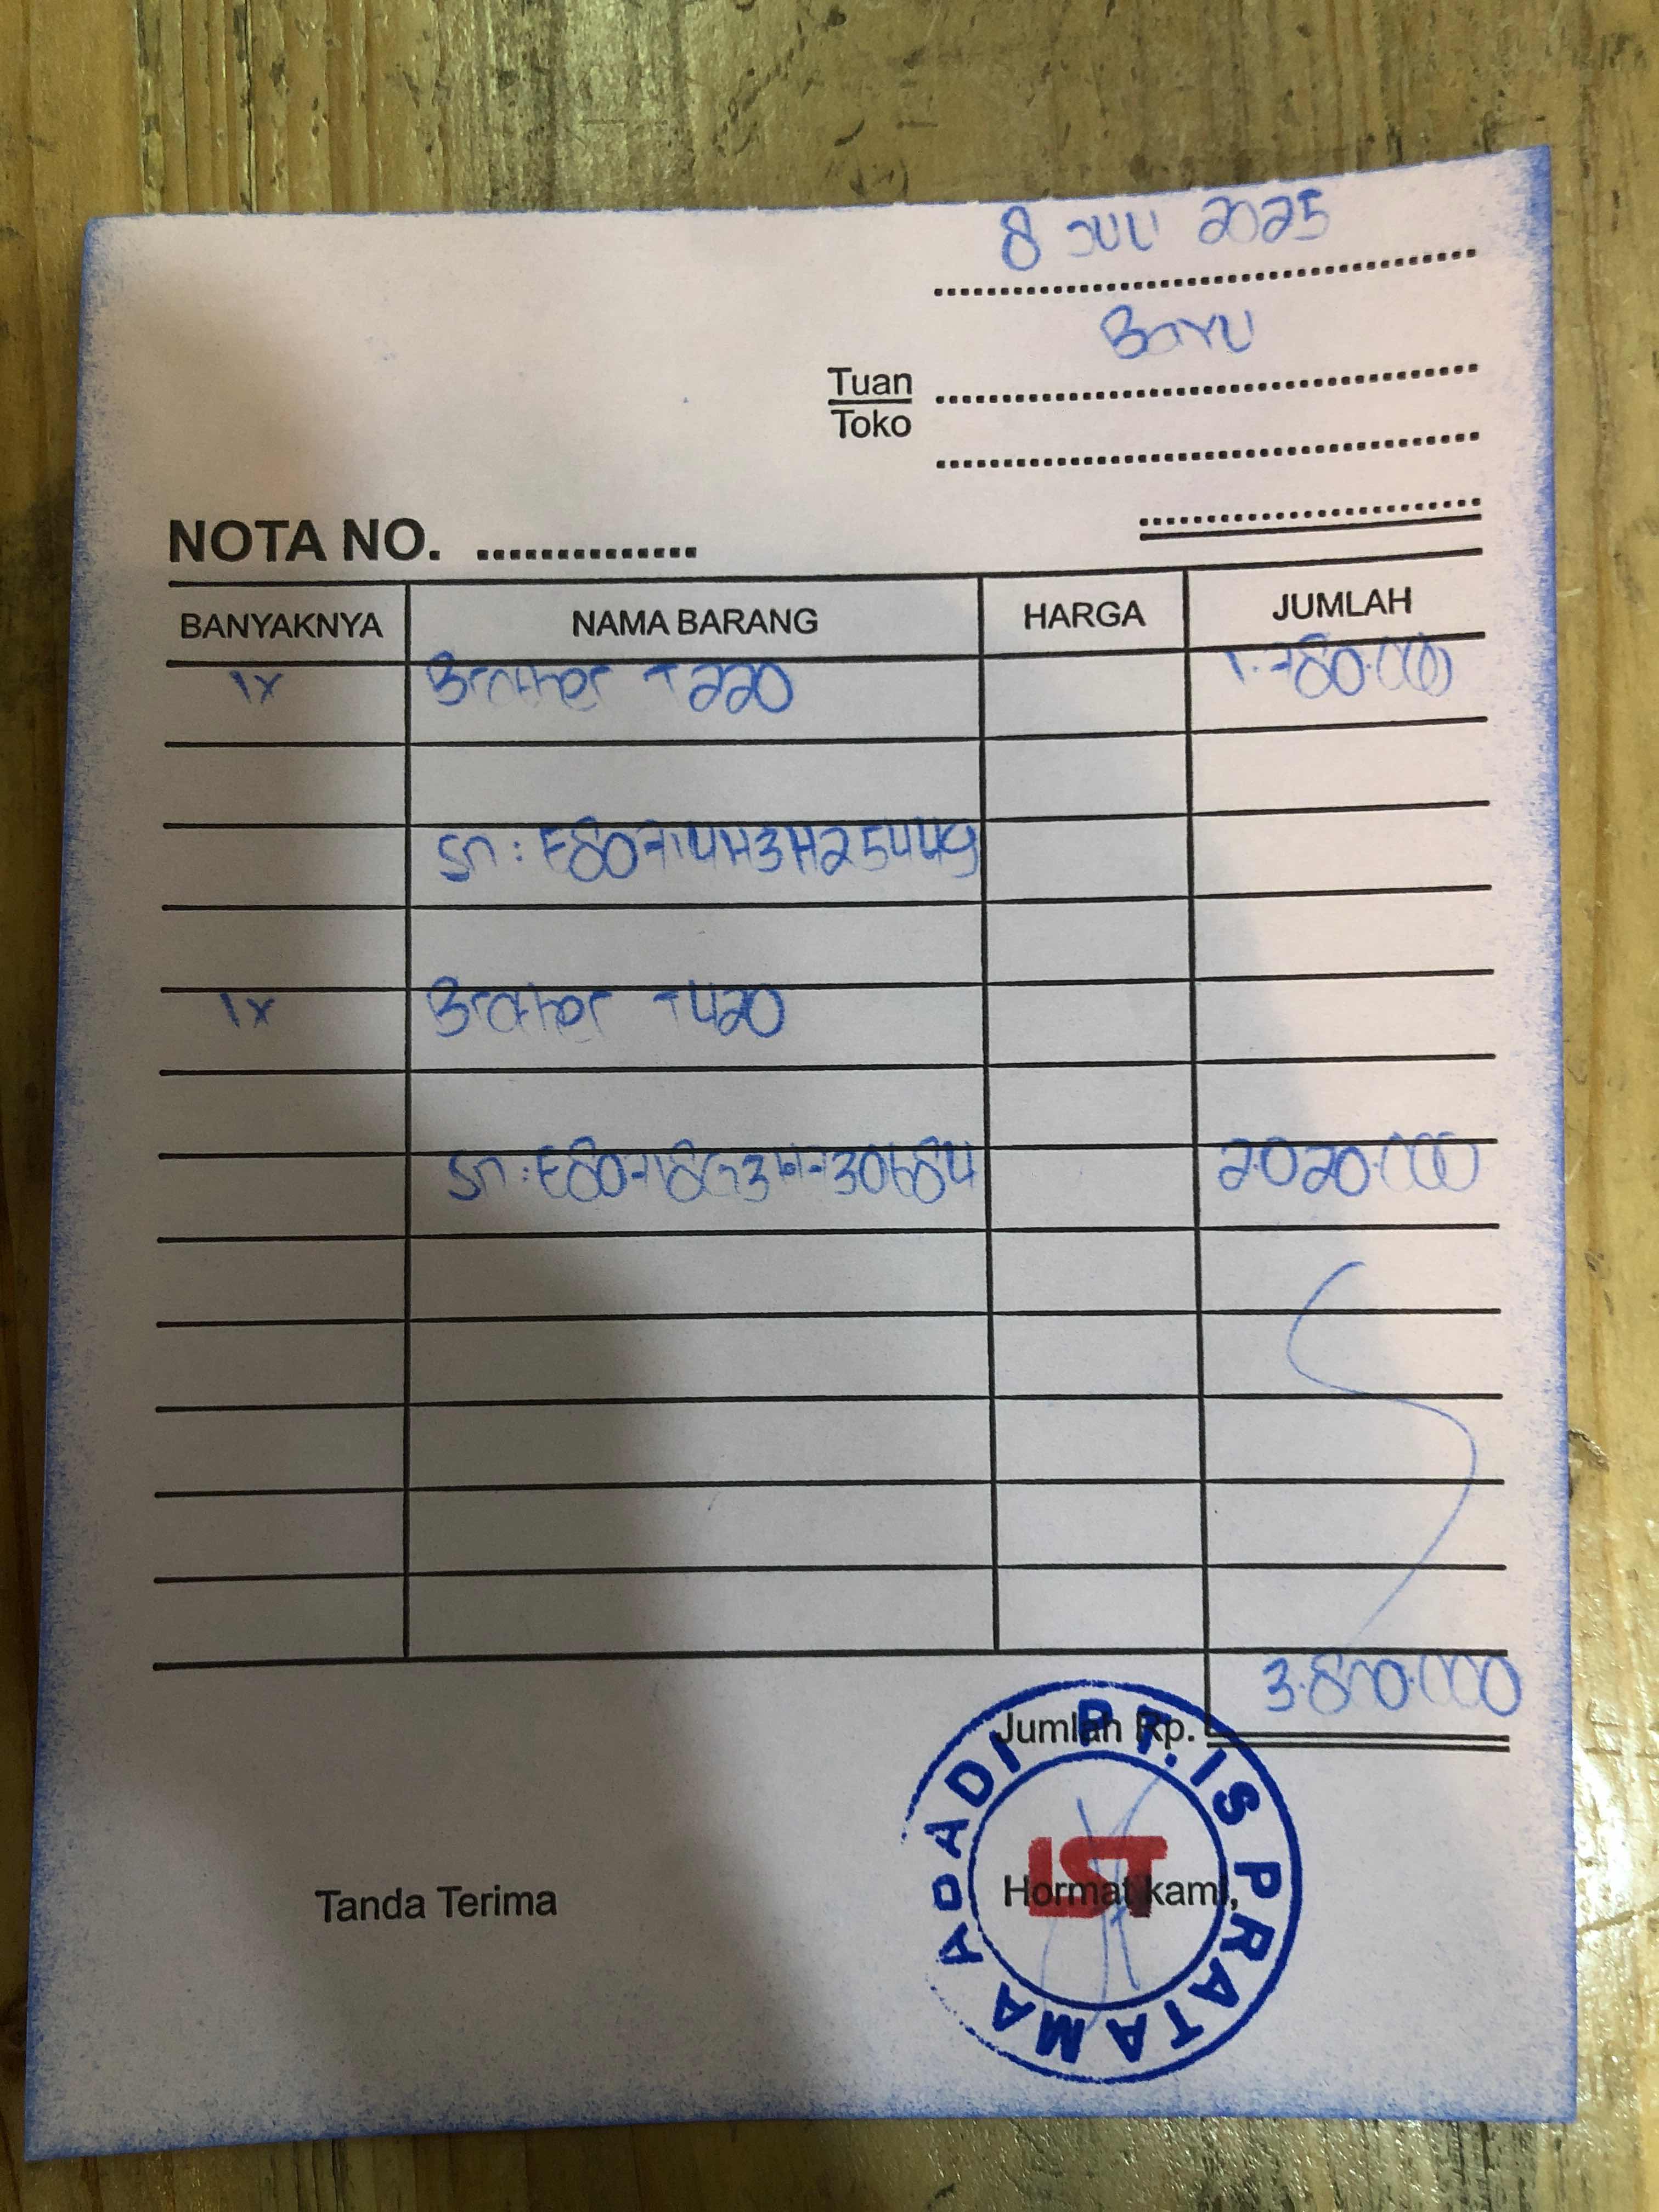 8 JULI 2025
Bayu
Tuan
Toko
NOTA NO. ..............
BANYAKNYA NAMA BARANG HARGA JUMLAH
1x Brother T220 1.780.000
Sn: E80714H3H254449
1x Brother T420
Sn: 2.020.000
3.800.000
Jumlah Rp.
Tanda Terima
Hormat kami,
PT. IS PRATAMA ABADI
IST